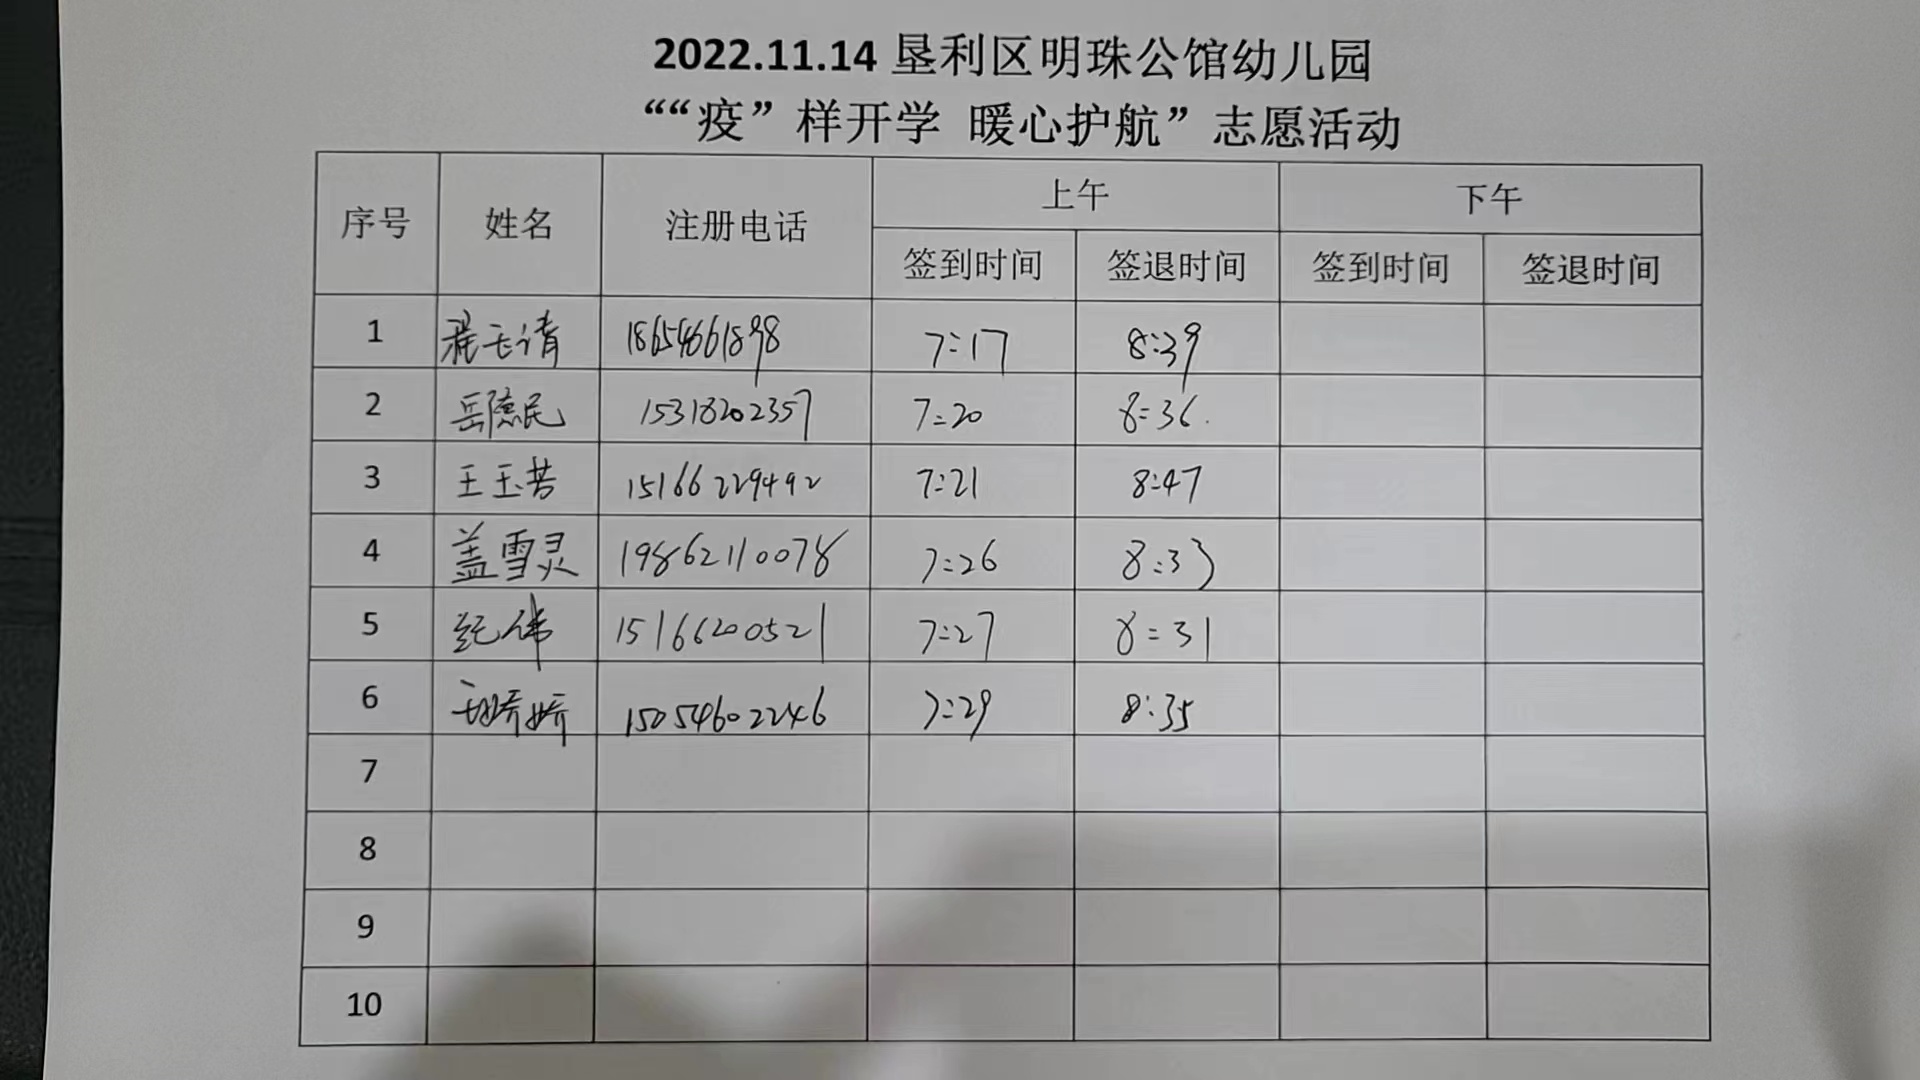 2022.11.14 垦利区明珠公馆幼儿园
““疫”样开学 暖心护航”志愿活动
序号 姓名 注册电话 上午 下午
签到时间 签退时间 签到时间 签退时间
1 18654661898 7:17 8:39
2 岳德民 15318202357 7:20 8:36
3 王玉芳 15166229492 7:21 8:47
4 盖雪灵 19862110078 7:26 8:33
5 纪伟 15166200521 7:27 8:31
6 15054602246 7:29 8:35
7
8
9
10